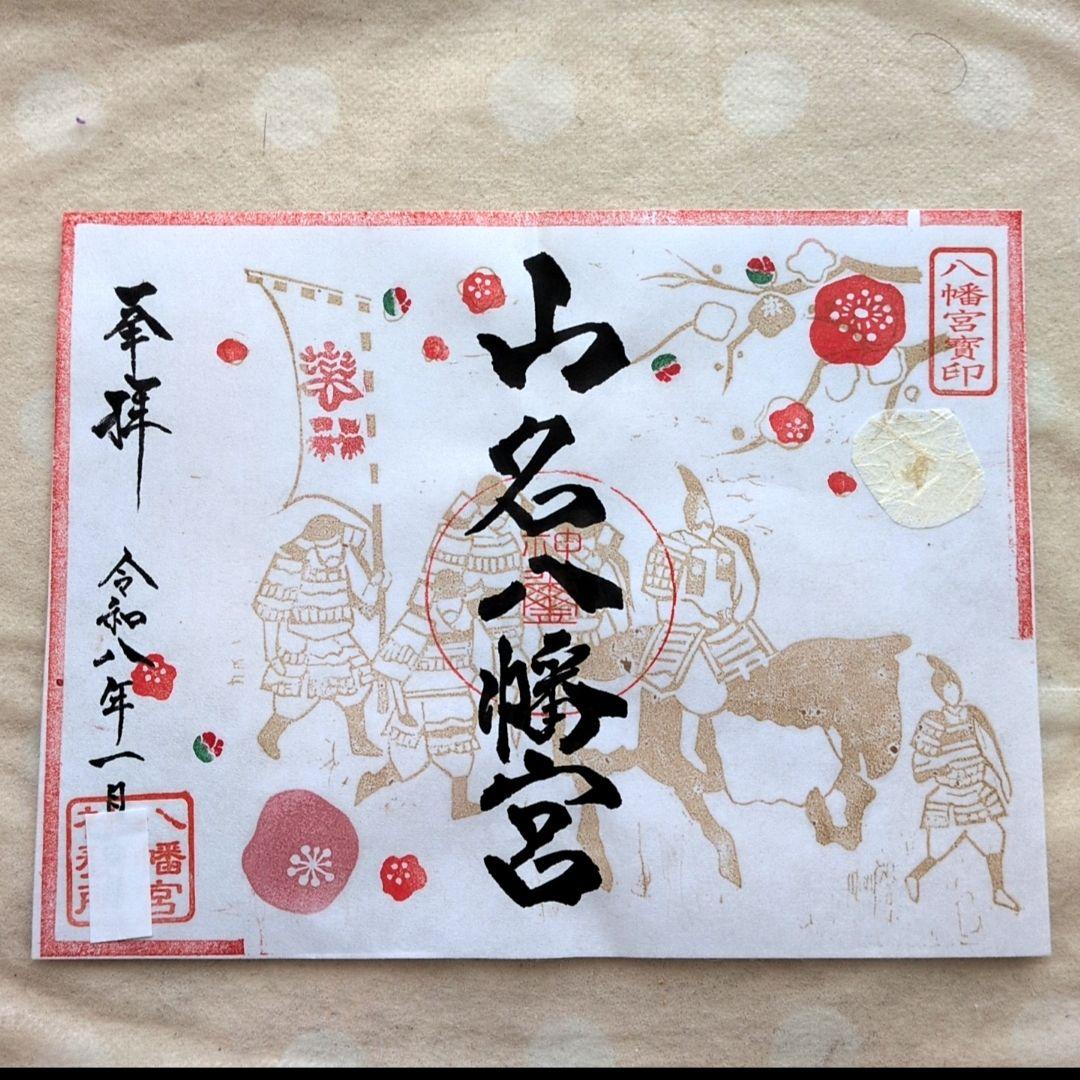 八幡宮寶印
山名八幡宮
奉拝
令和八年一月
八幡宮